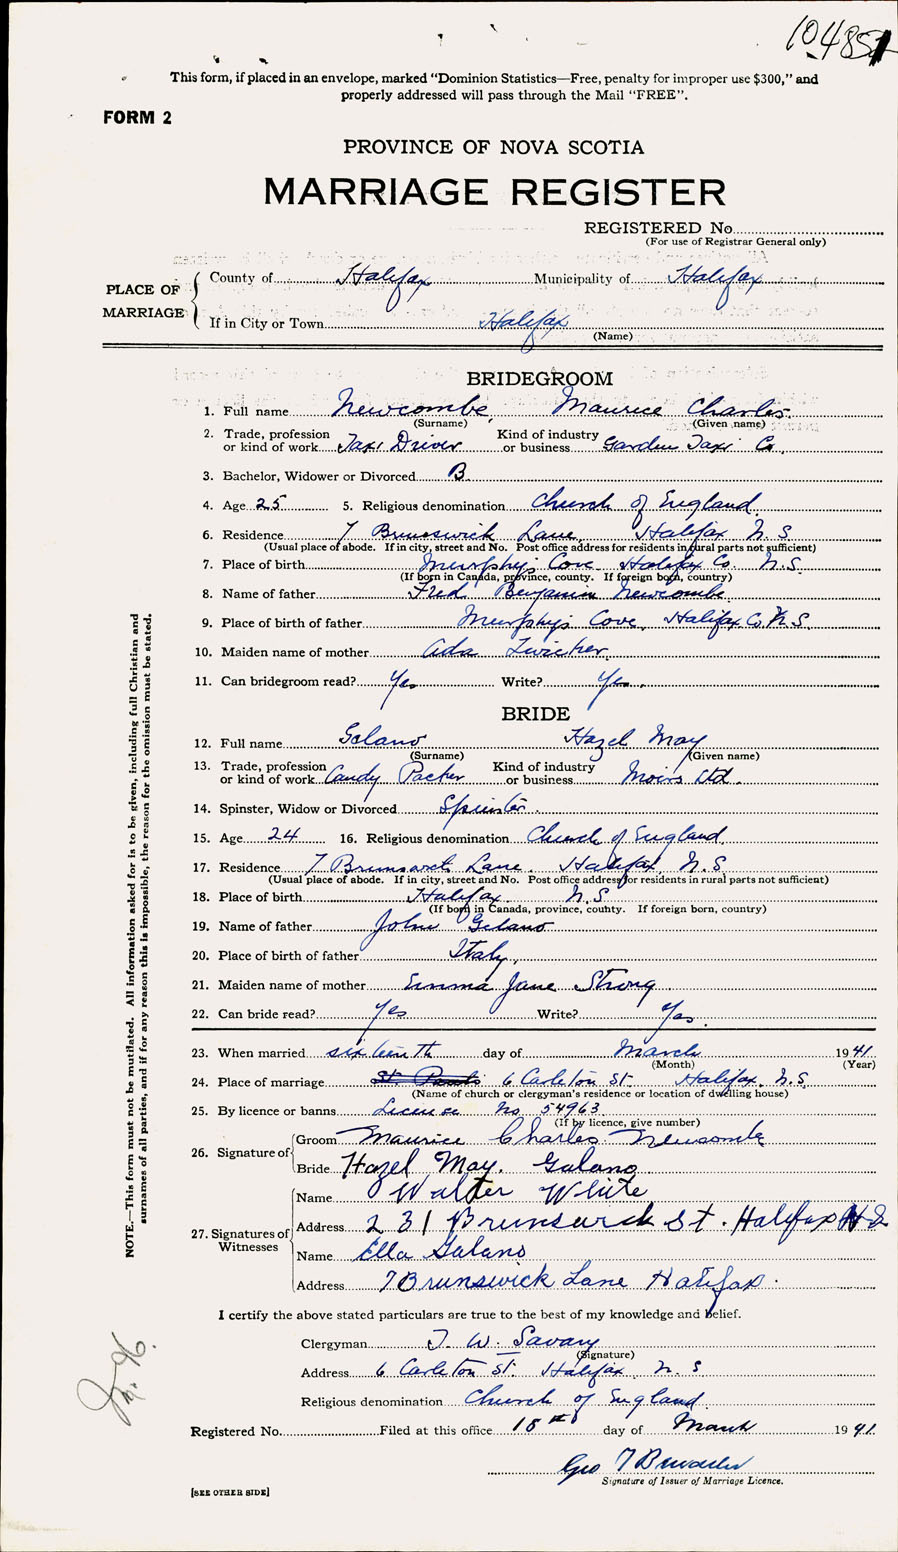 10485
This form, if placed in an envelope, marked "Dominion Statistics—Free, penalty for improper use $300," and
properly addressed will pass through the Mail "FREE".
FORM 2
PROVINCE OF NOVA SCOTIA
MARRIAGE REGISTER
REGISTERED No.
(For use of Registrar General only)
PLACE OF MARRIAGE
County of Halifax Municipality of Halifax
If in City or Town Halifax
(Name)
BRIDEGROOM
1. Full name Newcombe, Maurice Charles.
(Surname) (Given name)
2. Trade, profession or kind of work Taxi Driver Kind of industry or business Garden Taxi Co.
3. Bachelor, Widower or Divorced B.
4. Age 25 5. Religious denomination Church of England.
6. Residence 7 Brunswick Lane, Halifax N.S
(Usual place of abode. If in city, street and No. Post office address for residents in rural parts not sufficient)
7. Place of birth Murphy's Cove Halifax Co. N.S.
(If born in Canada, province, county. If foreign born, country)
8. Name of father Fred Benjamin Newcombe.
9. Place of birth of father Murphy's Cove, Halifax Co. N.S.
10. Maiden name of mother Ada Zwicker.
11. Can bridegroom read? Yes Write? Yes.
BRIDE
12. Full name Gelano Hazel May
(Surname) (Given name)
13. Trade, profession or kind of work Candy Packer Kind of industry or business Moirs Ltd.
14. Spinster, Widow or Divorced Spinster.
15. Age 24 16. Religious denomination Church of England.
17. Residence 7 Brunswick Lane. Halifax, N.S.
(Usual place of abode. If in city, street and No. Post office address for residents in rural parts not sufficient)
18. Place of birth Halifax. N.S.
(If born in Canada, province, county. If foreign born, country)
19. Name of father John Gelano
20. Place of birth of father Italy.
21. Maiden name of mother Emma Jane Strong.
22. Can bride read? Yes Write? Yes.
23. When married sixteenth day of March 1941.
(Month) (Year)
24. Place of marriage St Pauls 6 Carleton St. Halifax. N.S.
(Name of church or clergyman's residence or location of dwelling house)
25. By licence or banns License No 54963
(If by licence, give number)
26. Signature of
Groom Maurice Charles Newcombe
Bride Hazel May. Galano
27. Signatures of Witnesses
Name Walter White
Address 231 Brunswick St. Halifax N S
Name Ella Galano
Address 7 Brunswick Lane Halifax.
I certify the above stated particulars are true to the best of my knowledge and belief.
Clergyman T. W. Savary
(Signature)
Address 6 Carleton St. Halifax N. S
Religious denomination Church of England.
Registered No. Filed at this office 18th day of March 1941.
Geo
Signature of Issuer of Marriage Licence.
[SEE OTHER SIDE]
NOTE.—This form must not be mutilated. All information asked for is to be given, including full Christian and
surnames of all parties, and if for any reason this is impossible, the reason for the omission must be stated.